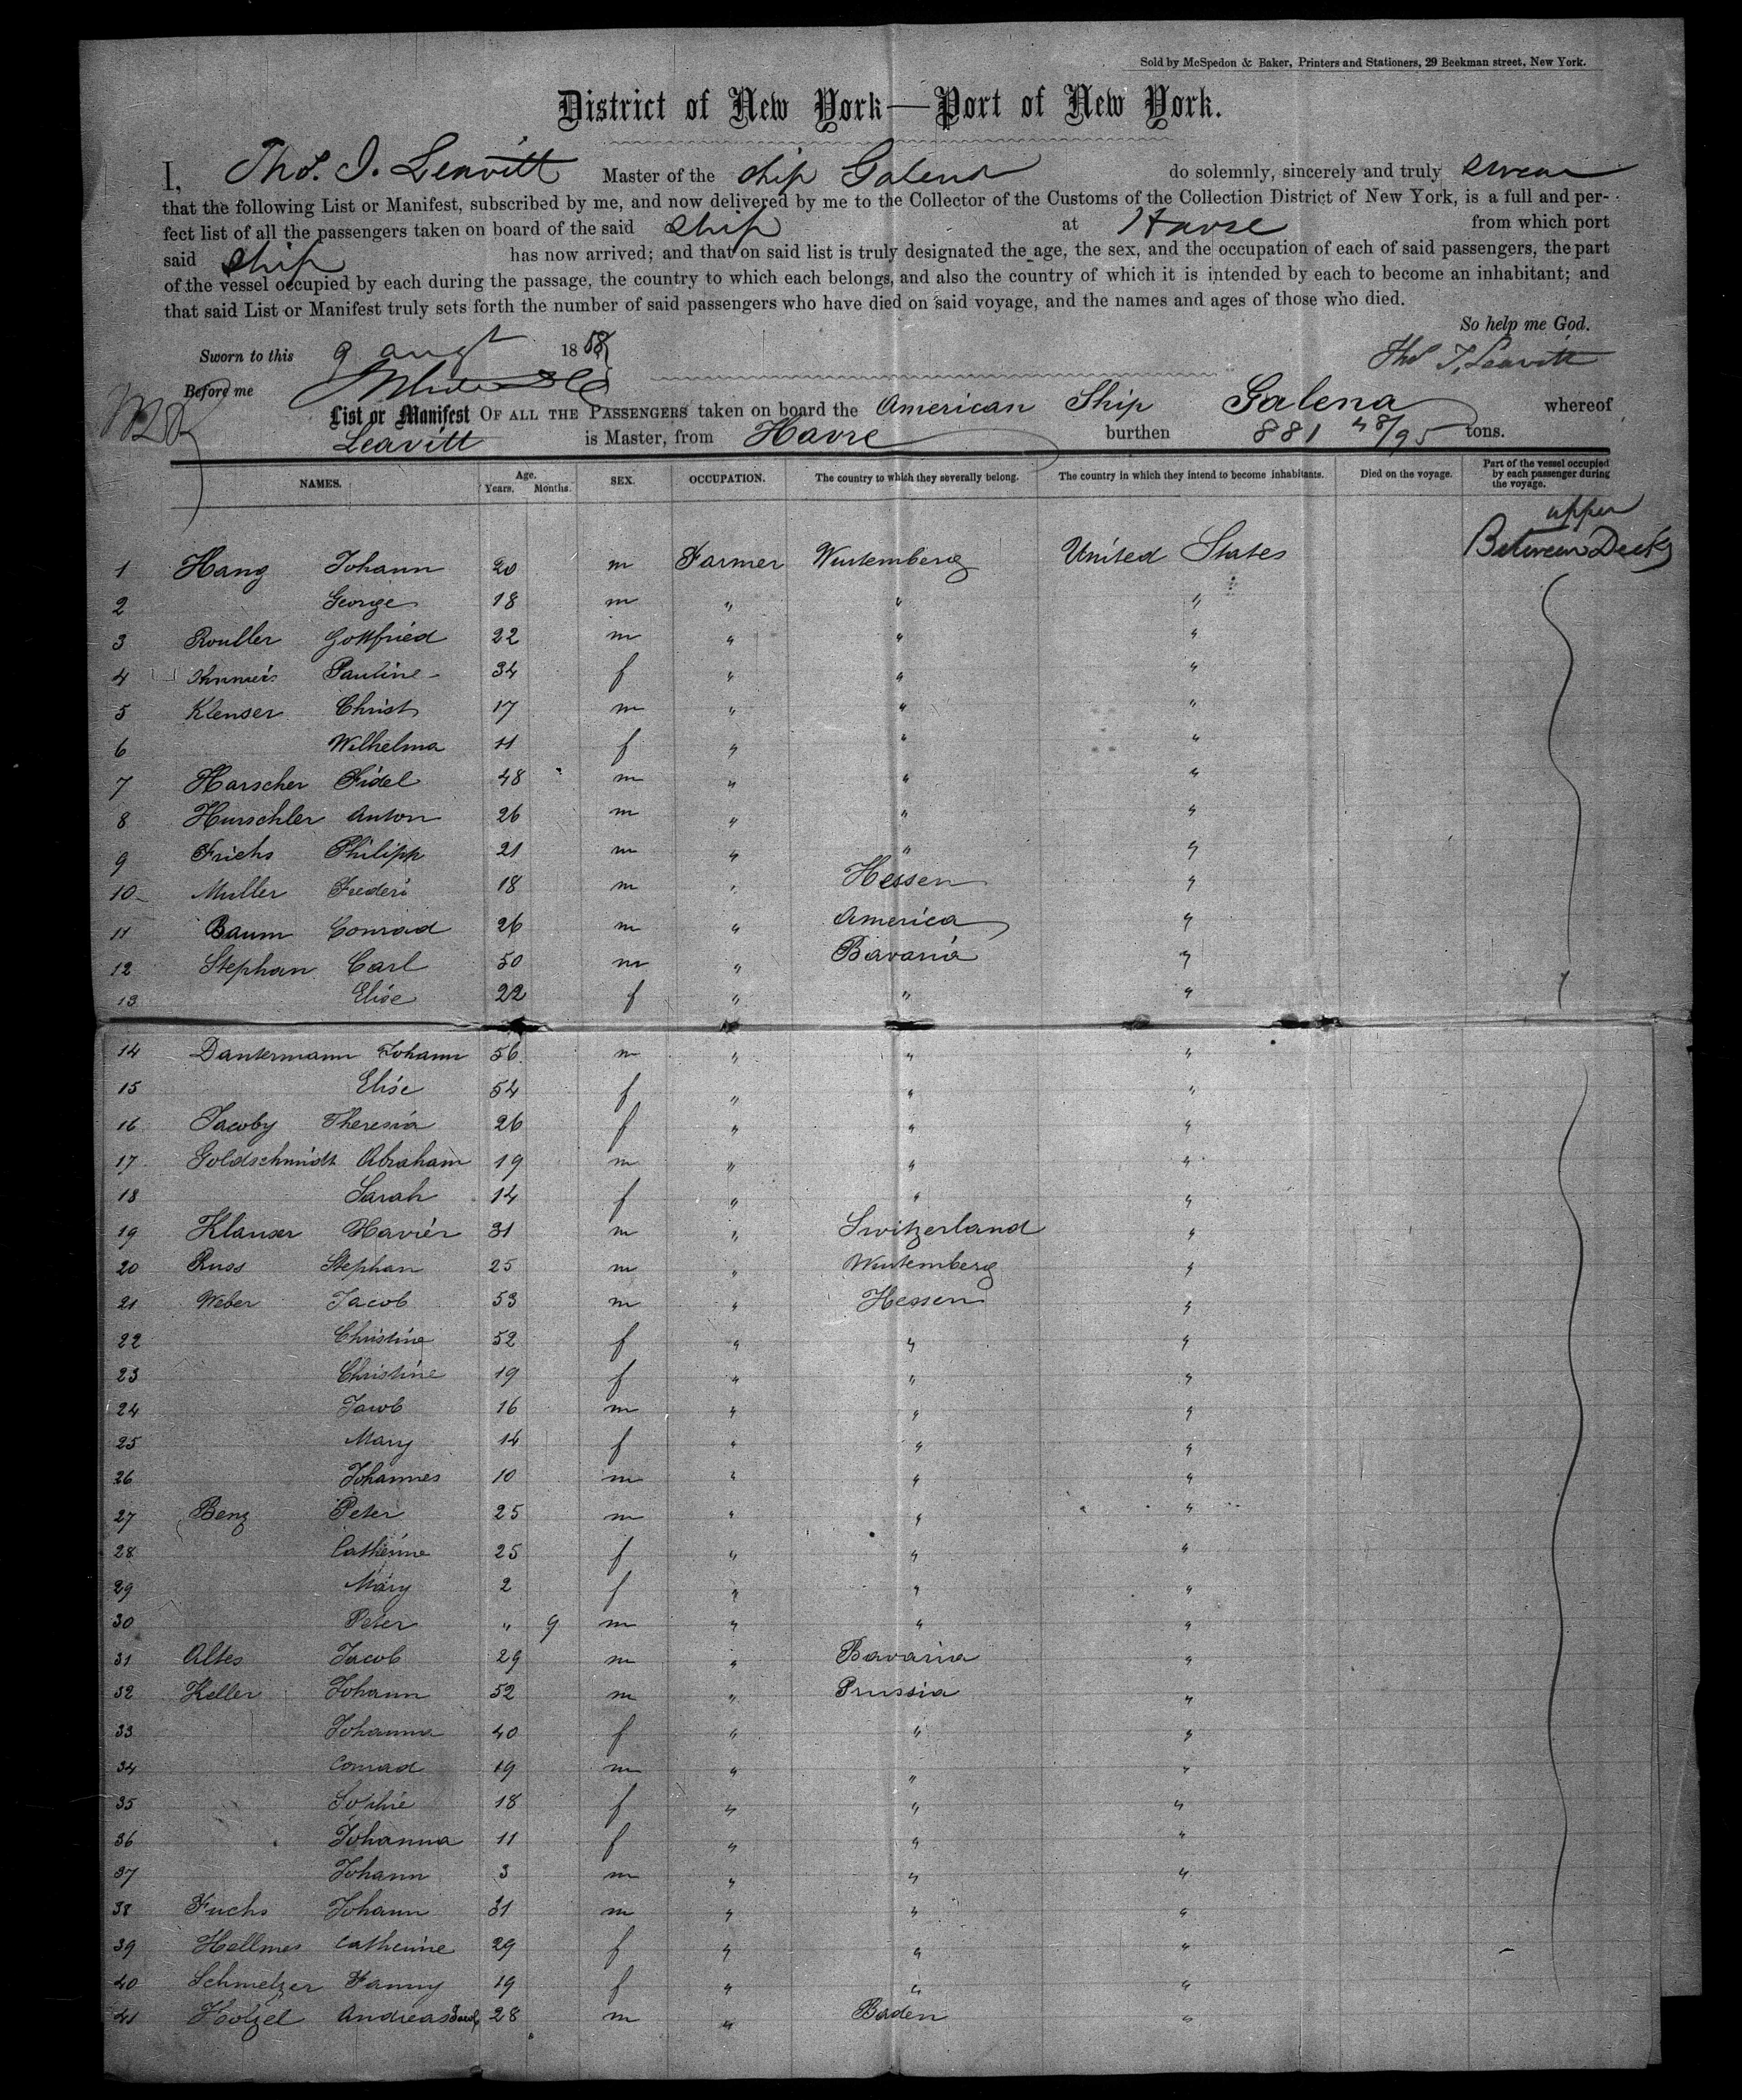 Sold by McSpedon & Baker, Printers and Stationers, 29 Beekman street, New York.
District of New York—Port of New York.
I, Tho. J. Leavitt Master of the ship Galena do solemnly, sincerely and truly swear
that the following List or Manifest, subscribed by me, and now delivered by me to the Collector of the Customs of the Collection District of New York, is a full and per-
fect list of all the passengers taken on board of the said ship at Havre from which port
said ship has now arrived; and that on said list is truly designated the age, the sex, and the occupation of each of said passengers, the part
of the vessel occupied by each during the passage, the country to which each belongs, and also the country of which it is intended by each to become an inhabitant; and
that said List or Manifest truly sets forth the number of said passengers who have died on said voyage, and the names and ages of those who died.
So help me God.
Sworn to this 9 augt 1858
Tho J. Leavitt
Before me
List or Manifest OF ALL THE PASSENGERS taken on board the American Ship Galena whereof
Leavitt is Master, from Havre burthen 881 48/95 tons.
NAMES. Age. Years. Months. SEX. OCCUPATION. The country to which they severally belong. The country in which they intend to become inhabitants. Died on the voyage. Part of the vessel occupied by each passenger during the voyage.
upper
1 Hang Johann 20 m Farmer Wurtemberg United States Between Decks
2 George 18 m " " "
3 Rouller Gottfried 22 m " " "
4 Pauline 34 f " " "
5 Klenser Christ 17 m " " "
6 Wilhelma 11 f " " "
7 Harscher Fidel 48 m " " "
8 Hurschler Anton 26 m " " "
9 Frichs Philipp 21 m " " "
10 Muller Frederi 18 m " Hessen "
11 Baum Conrad 26 m " America "
12 Stephan Carl 50 m " Bavaria "
13 Elise 22 f " " "
14 Dantermann Johann 56 m " " "
15 Elise 54 f " " "
16 Jacoby Theresia 26 f " " "
17 Goldschmidt Abraham 19 m " " "
18 Sarah 14 f " " "
19 Klauser Xavier 31 m " Switzerland "
20 Russ Stephan 25 m " Wurtemberg "
21 Weber Jacob 53 m " Hessen "
22 Christine 52 f " " "
23 Christine 19 f " " "
24 Jacob 16 m " " "
25 Mary 14 f " " "
26 Johannes 10 m " " "
27 Benz Peter 25 m " " "
28 Catherine 25 f " " "
29 Mary 2 f " " "
30 Peter " 9 m " " "
31 Altes Jacob 29 m " Bavaria "
32 Keller Johann 52 m " Prussia "
33 Johanna 40 f " " "
34 Conrad 19 m " " "
35 Sophie 18 f " " "
36 Johanna 11 f " " "
37 Johann 3 m " " "
38 Fuchs Johann 31 m " " "
39 Hellmes Catherine 29 f " " "
40 Schmelzer Fanny 19 f " " "
41 Holzel Andreas 28 m " Baden "